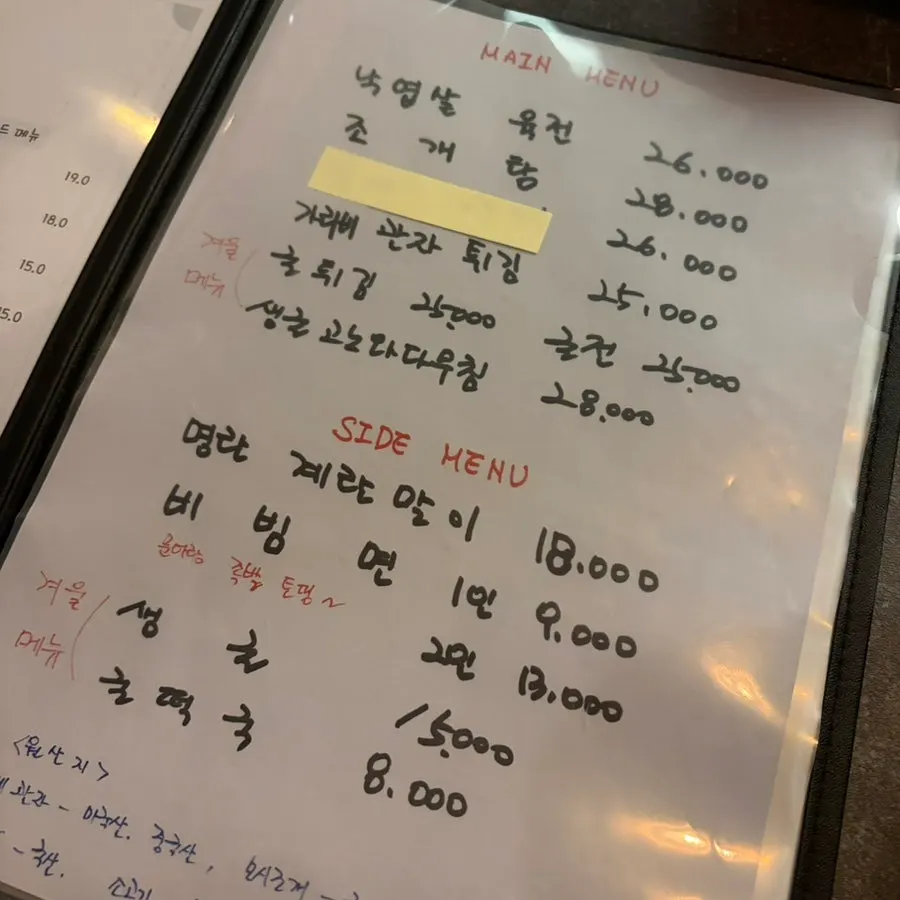 드 메뉴
19.0
18.0
15.0
5.0
MAIN MENU
낙엽살 육전 26.000
조개탕 28.000
26.000
가리비 관자 튀김 25.000
겨울 메뉴
굴튀김 25.000 굴전 25.000
생굴고노와다무침 28.000
SIDE MENU
명란 계란말이 18.000
비빔면 1인 9.000
족발 토핑~ 2인 13.000
겨울 메뉴
생굴 15.000
굴떡국 8.000
<원산지>
관자 - 미국산. 중국산,
- 국산. 소고기